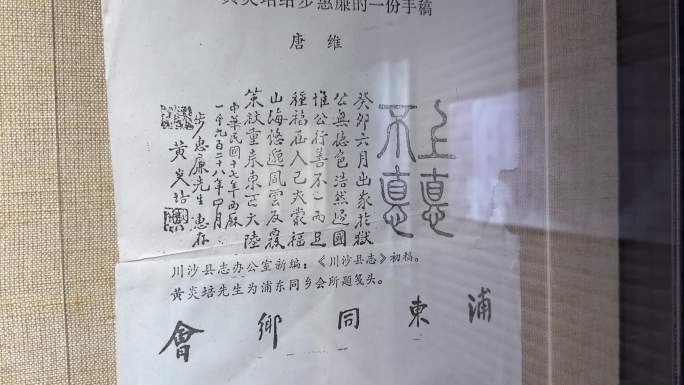 黄炎培给步惠廉的一份手稿
唐 维
上悳
不悳
癸卯六月出我於獄
公無德色浩然歸國
惟公行善不一而且
種福在人己亦蒙福
山海悠邈風雲反覆
策杖重来東亞大陸
中華民國十七年西厤
一千九百二十八年四月
步惠廉先生惠存
黄炎培
川沙县志办公室新编：《川沙县志》初稿。
黄炎培先生为浦东同乡会所题笺头。
浦東同鄉會